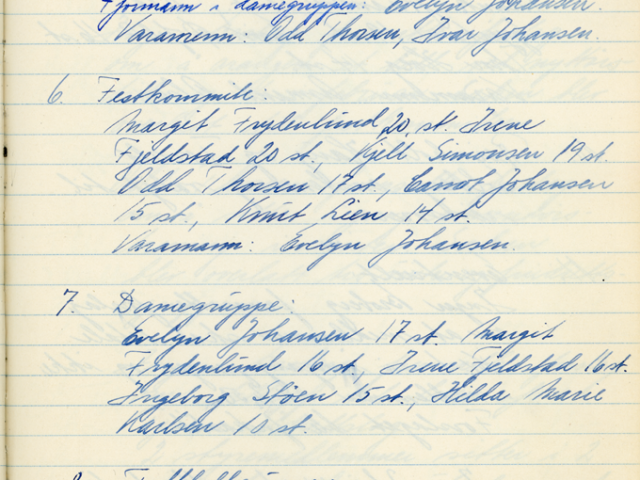 Formann i damegruppen: Evelyn Johansen.
Varamenn: Odd Thorsen, Ivar Johansen.
6. Festkommite:
Margit Frydenlund 20. st. Irene
Fjeldstad 20 st., Kjell Simonsen 19 st.
Odd Thorsen 17 st., Johansen
15 st., Knut Lien 14 st.
Varamann: Evelyn Johansen.
7. Damegruppe:
Evelyn Johansen 17 st. Margit
Frydenlund 16 st., Irene Fjeldstad 16 st.
Ingeborg Støen 15 st., Hilda Marie
Karlsen 10 st.